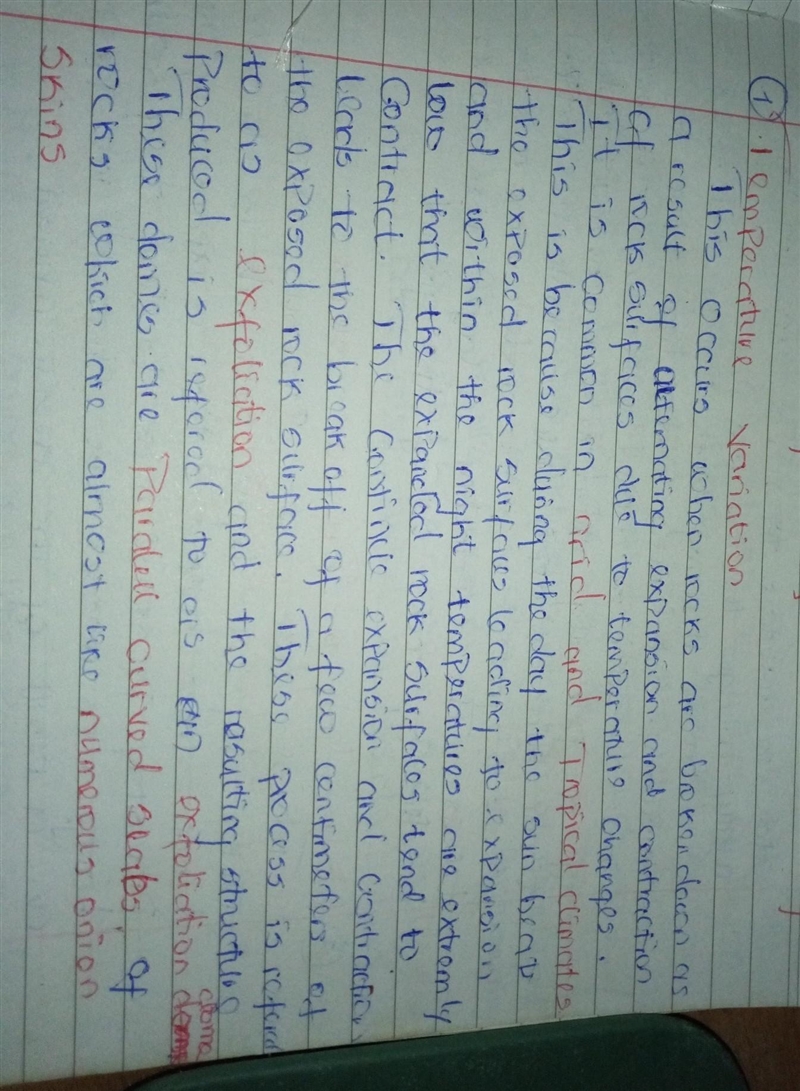 1. Temperature Variation
This occurs when rocks are broken down as
a result of alternating expansion and contraction
of rock surfaces due to temperature changes.
It is common in arid and Tropical climates
This is because during the day the sun heat
the exposed rock surfaces leading to expansion
and within the night temperatures are extremly
low that the expanded rock surfaces tend to
Contract. The continue expansion and contraction
leads to the break off of a few centimeters of
the exposed rock surface. These process is refered
to as exfoliation and the resulting structure
Produced is refereed to as an exfoliation dome
These domes are Parallell curved slabs of
rocks which are almost like numerous onion
Skins